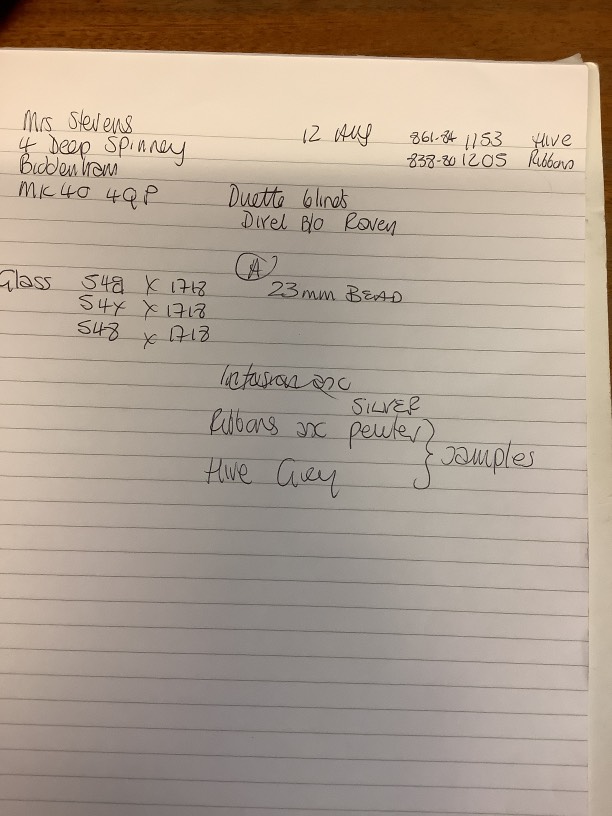 Mrs Stevens
4 Deep Spinney
Biddenham
MK40 4QP
12 Aug
861-84 1153 Hive
838-80 1205 Ribbons
Duette blinds
B/O Roven
A
23mm BEAD
Glass 548 x 1718
54x x 1718
548 x 1718
Infusion asc
SILVER
Ribbons asc pewter } samples
Hive Grey